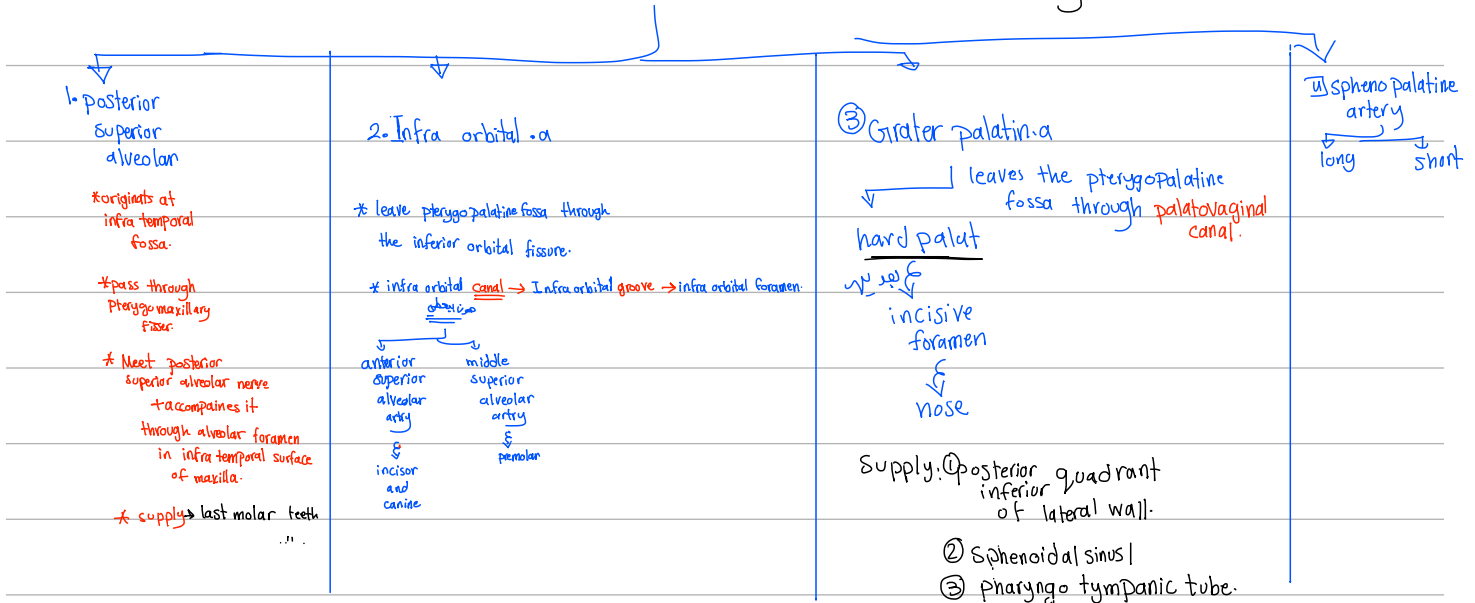 1. posterior
superior
alveolar
*originats at
infra temporal
fossa.
*pass through
Pterygomaxillary
fisser.
* Meet posterior
superior alveolar nerve
+accompaines it
through alveolar foramen
in infra temporal surface
of maxilla.
* supply→ last molar teeth
2. Infra orbital .a
* leave pterygopalatine fossa through
the inferior orbital fissure.
* infra orbital canal → Infraorbital groove → infra orbital foramen.
anterior
superior
alveolar
artry
incisor
and
canine
middle
superior
alveolar
artry
premolar
③ Grater palatin.a
leaves the pterygopalatine
fossa through palatovaginal
canal.
hard palat
incisive
foramen
nose
Supply: ① posterior quadrant
inferior
of lateral wall.
② Sphenoidal sinus
③ pharyngo tympanic tube.
spheno palatine
artery
long short